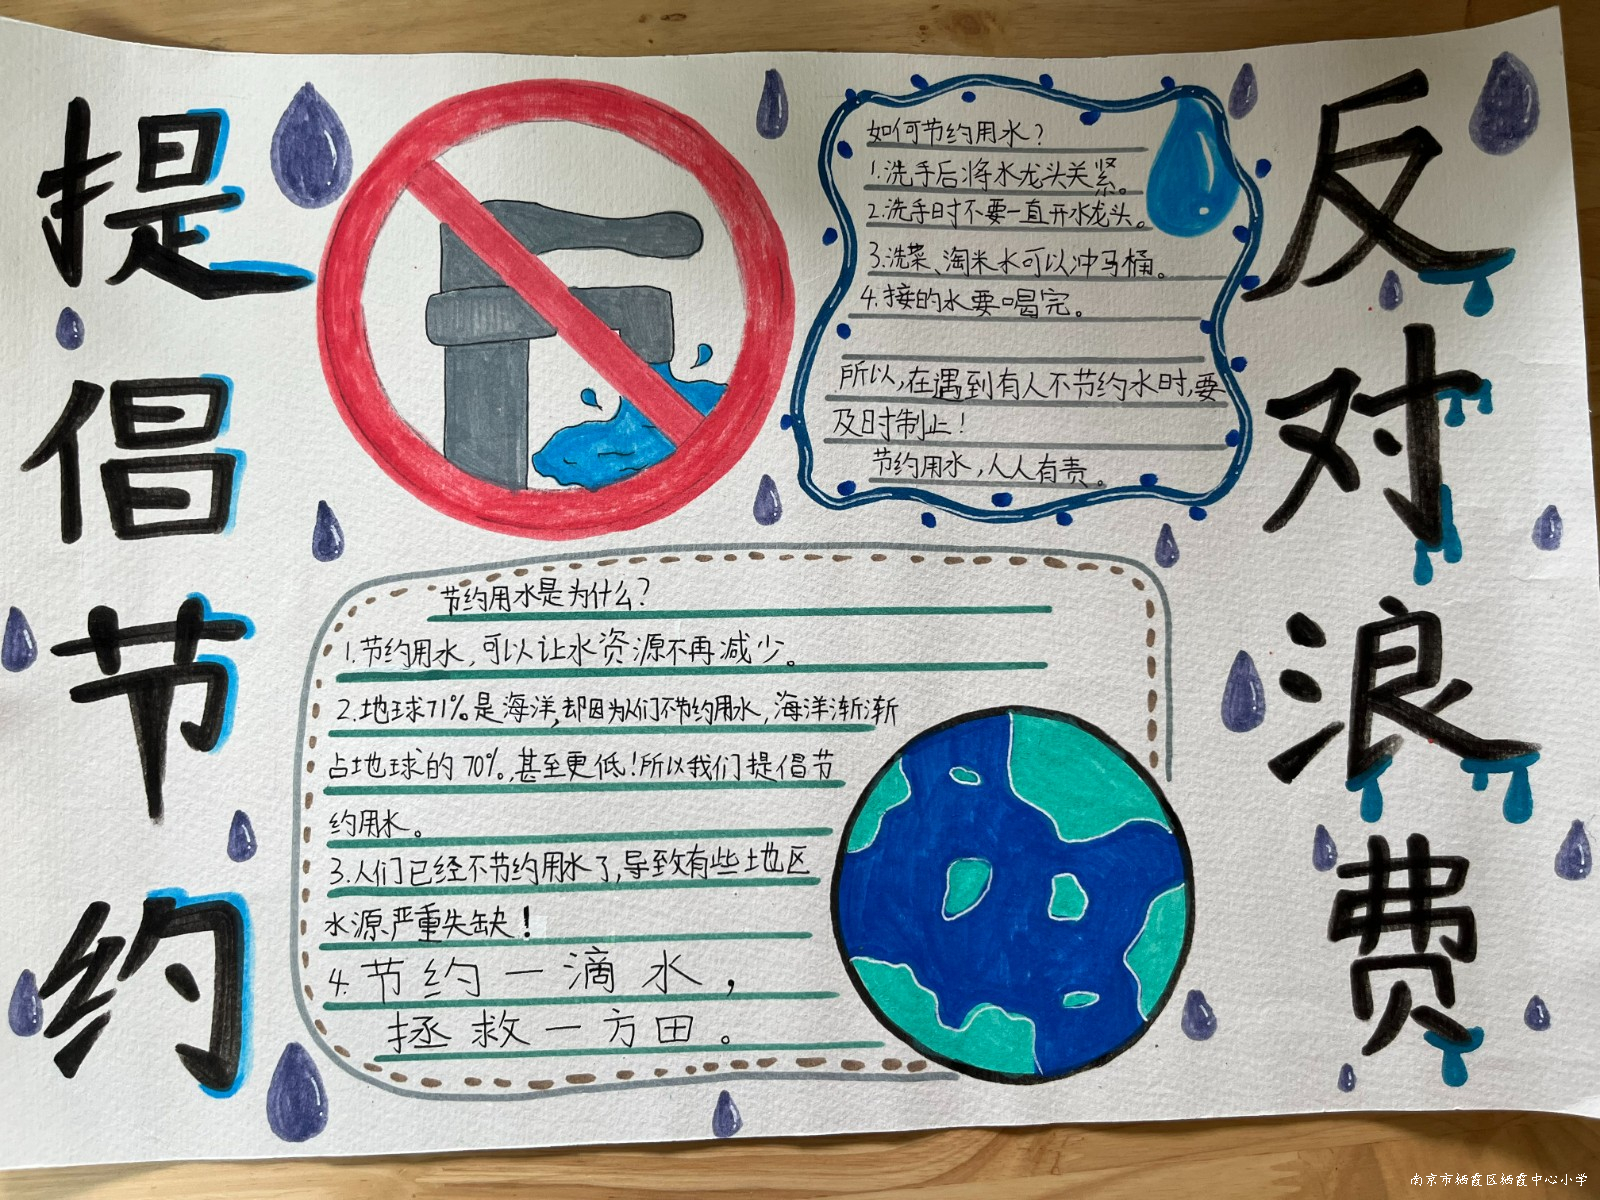 提倡节约
如何节约用水？
1.洗手后将水龙头关紧。
2.洗手时不要一直开水龙头。
3.洗菜、淘米水可以冲马桶。
4.接的水要喝完。
所以,在遇到有人不节约水时,要
及时制止！
节约用水,人人有责。
节约用水是为什么？
1.节约用水,可以让水资源不再减少。
2.地球71%是海洋,却因为人们不节约用水,海洋渐渐
占地球的70%,甚至更低！所以我们提倡节
约用水。
3.人们已经不节约用水了,导致有些地区
水源严重失缺！
4.节约一滴水,
拯救一方田。
反对浪费
南京市栖霞区栖霞中心小学